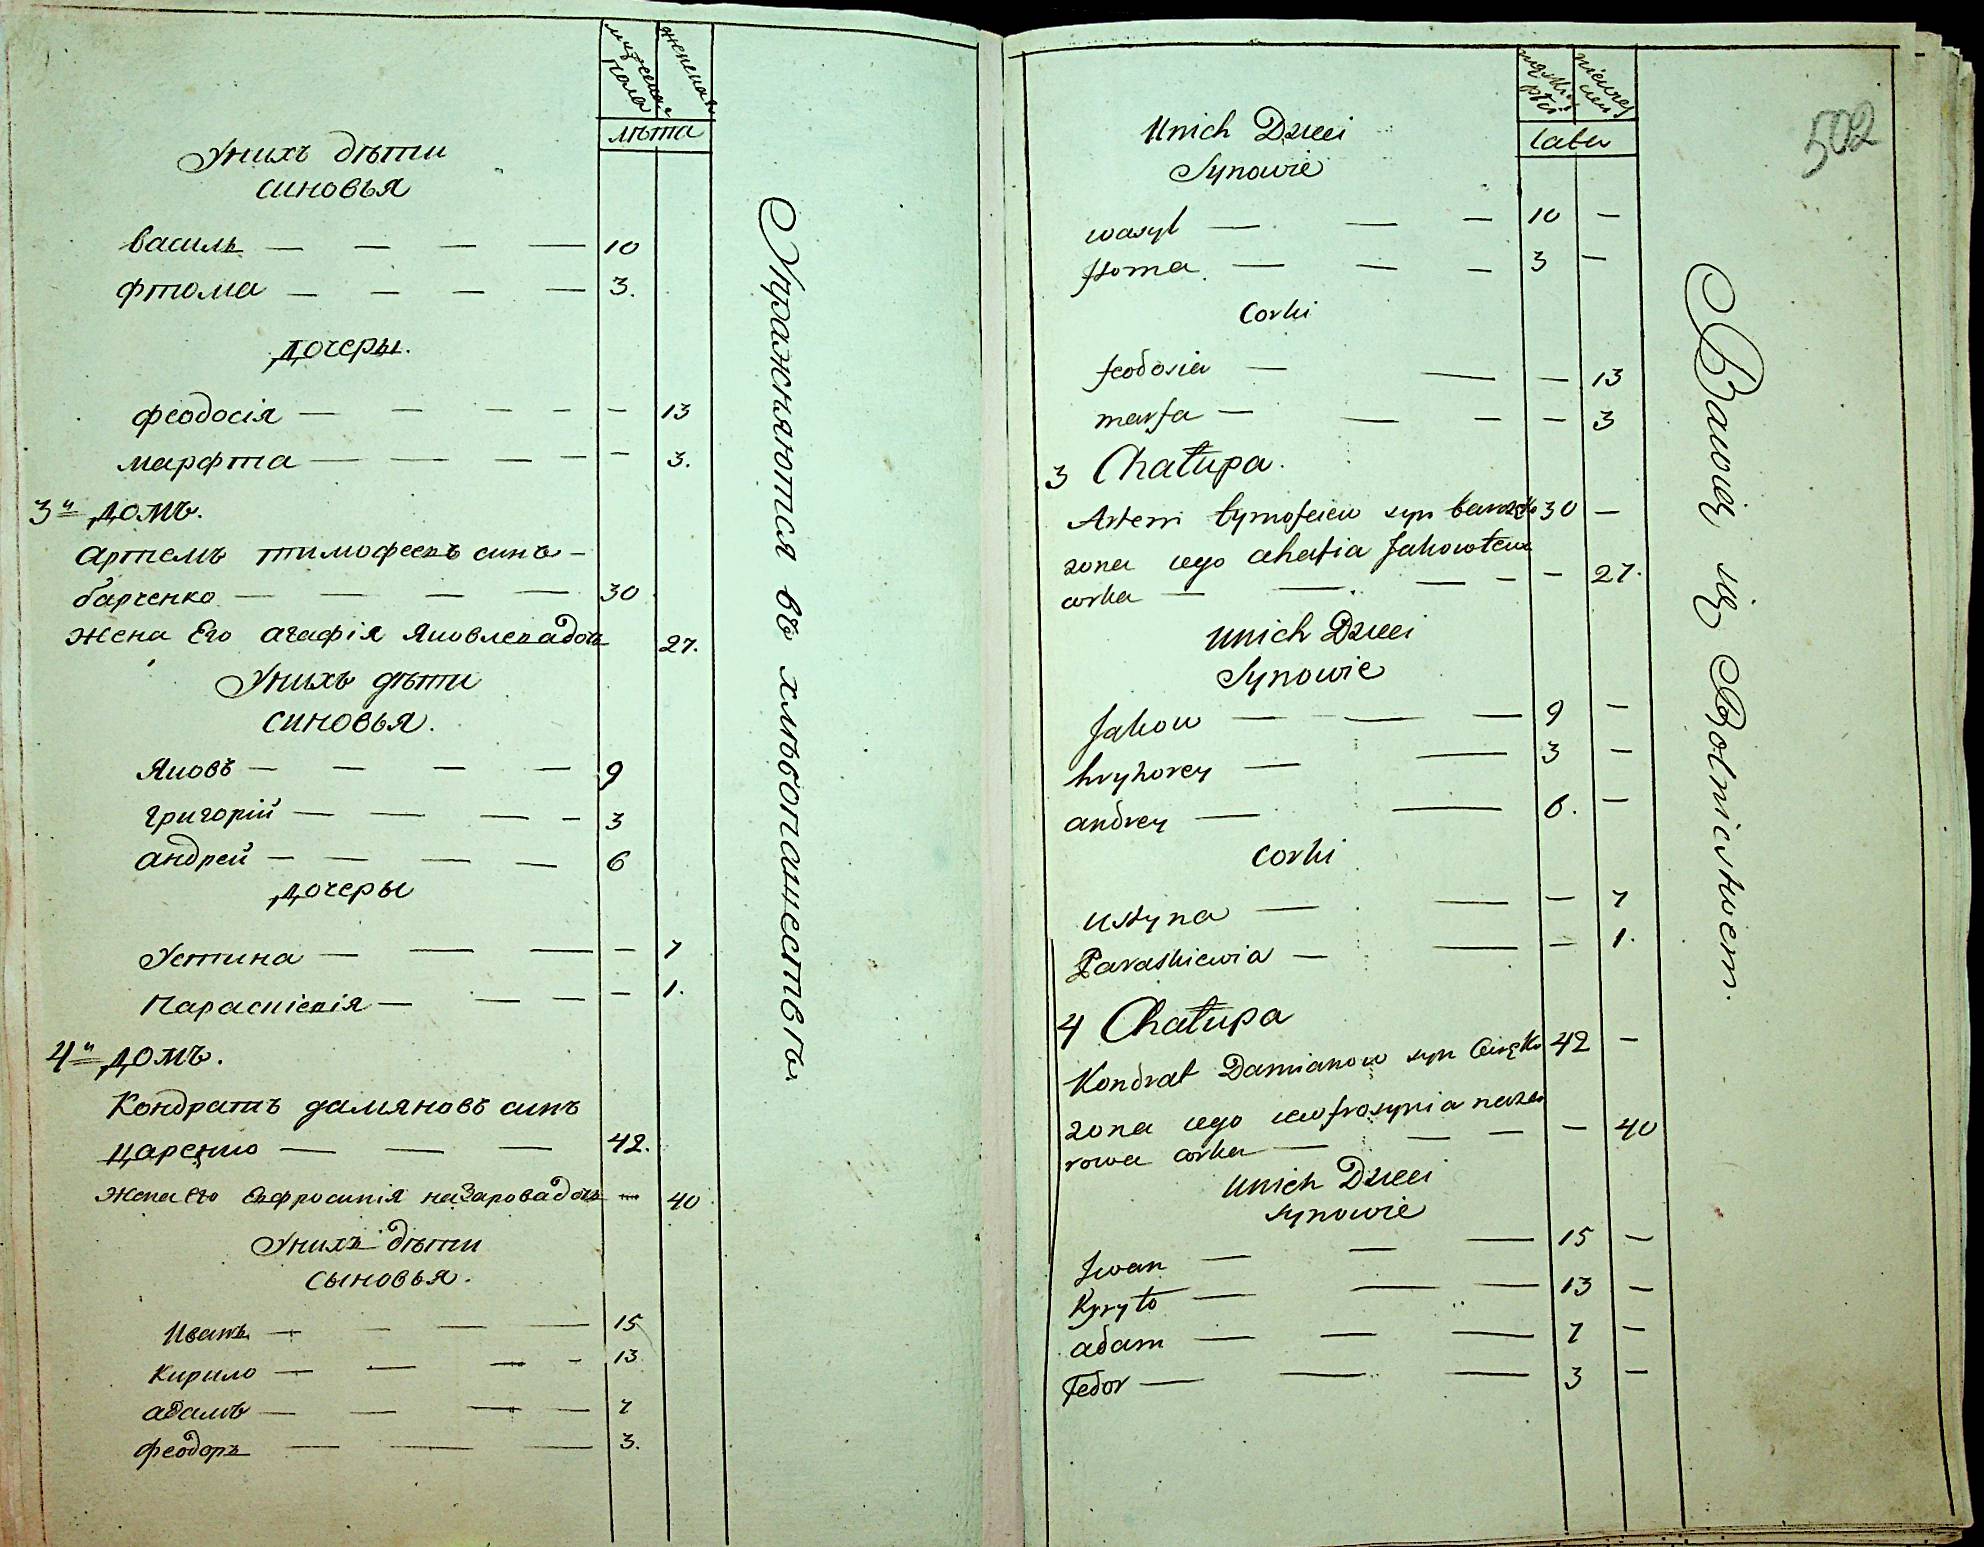 мужеска пола
женска
лѣта
Унихъ дѣти
синовья
василь — — — — 10
фтома — — — — 3.
дочеры.
феодосія — — — — — 13
марфта — — — — — 3.
3й домъ.
артемъ тимофеевъ синъ —
барченко — — — — 30
жена Его агафія Яковлевадоч 27.
Унихъ дѣти
синовья.
Яковъ — — — — 9
григорій — — — — 3
андрей — — — — 6
дочеры
Устина — — — — 7
Параскіевія — — — — — 1.
4й домъ.
Кондратъ дамяновъ синъ
царенко — — — 42.
жена его Евфросинія назаровадоч — 40
Унихъ дѣти
сыновья.
Иванъ — — — — 15
Кирило — — — — 13
адамъ — — — — 7
феодоръ — — — 3.
Упражняются въ хлѣбопашествѣ.
502
męskiej płci
lata
Unich Dzieci
Synowie
wasyl — — — 10 —
ftoma — — — 3 —
Corki
feodosia — — — 13
marfa — — — — 3
3 Chałupa.
Artem tymofeiew syn 30 —
zona iego ahafia Jakowlewa
corka — — — — — 27.
Unich Dzieci
Synowie
Jakow — — — 9 —
hryhorey — — 3 —
andrey — — 6. —
Corki
Ustyna — — — 7
Paraskiewia — — — 1.
4 Chałupa
Kondrat Damianow syn 42 —
zona iego iewfrosynia naza
rowa corka — — — — 40
Unich Dzieci
synowie
Iwan — — — 15 —
Kyryło — — — 13 —
adam — — — 7 —
Fedor — — — 3 —
Bawią się Rolnictwem.